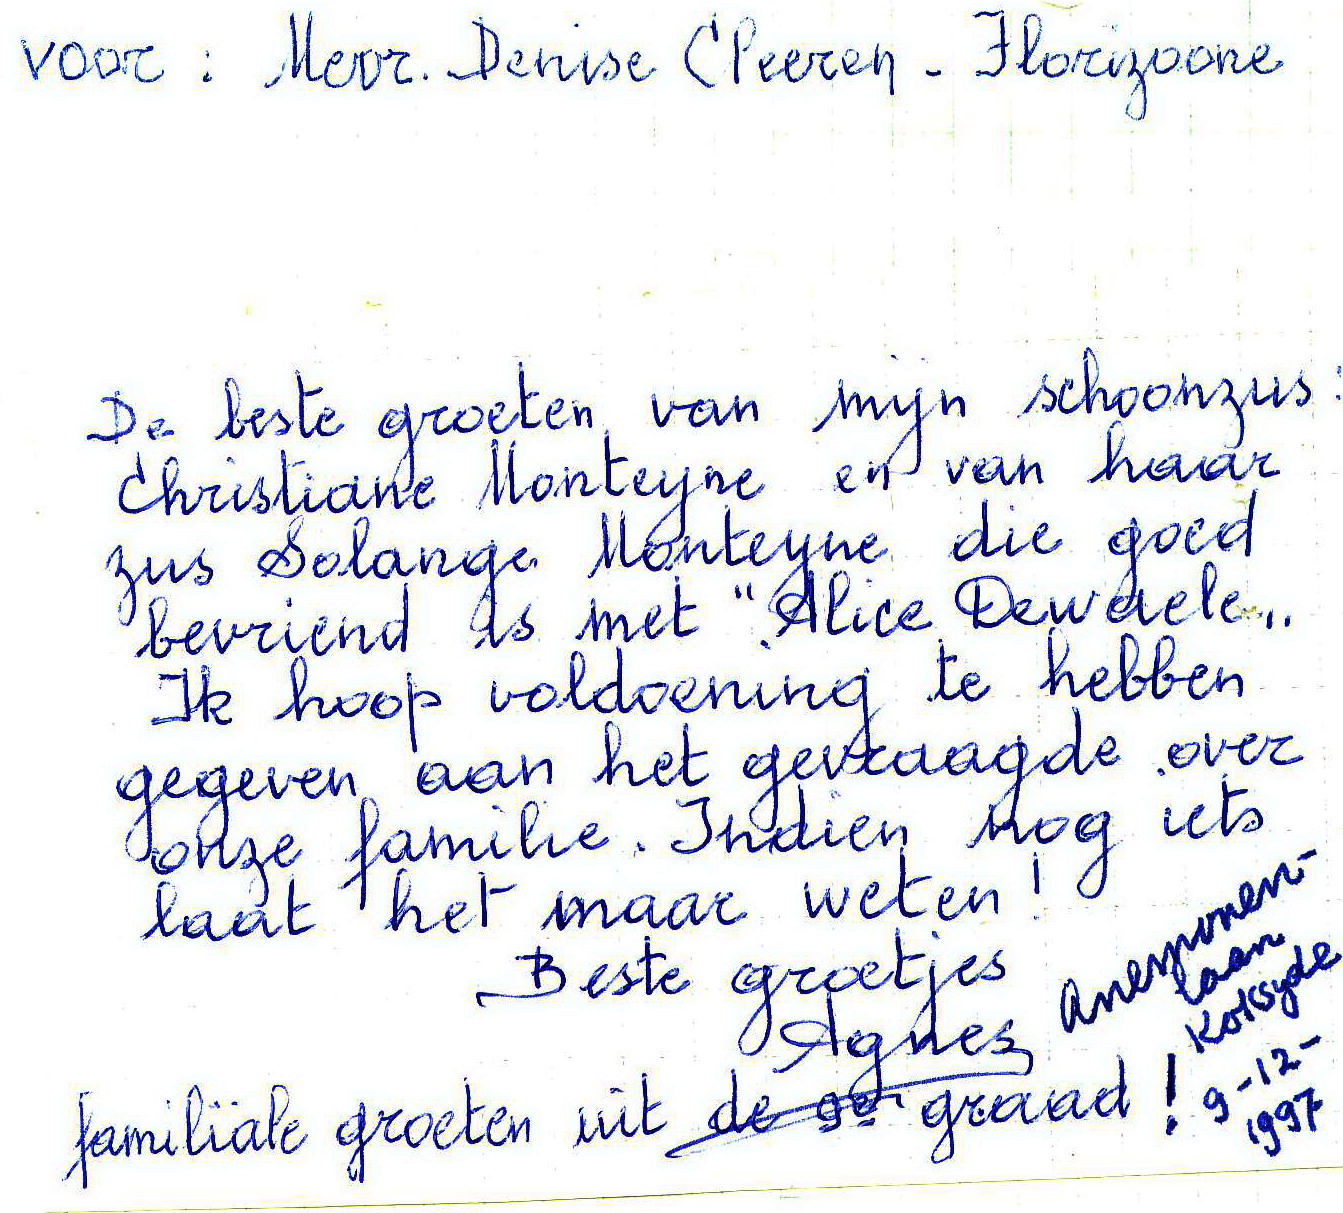 voor : Mevr. Denise Cleeren - Florizoone
De beste groeten van mijn schoonzus:
Christiane Monteyne en van haar
zus Solange Monteyne die goed
bevriend is met "Alice Dewaele„
Ik hoop voldoening te hebben
gegeven aan het gevraagde over
onze familie. Indien nog iets
laat het maar weten!
Beste groetjes
Agnes
familiäle groeten uit de 9e graad!
Anemonen-
laan
Koksyde
9-12-
1997